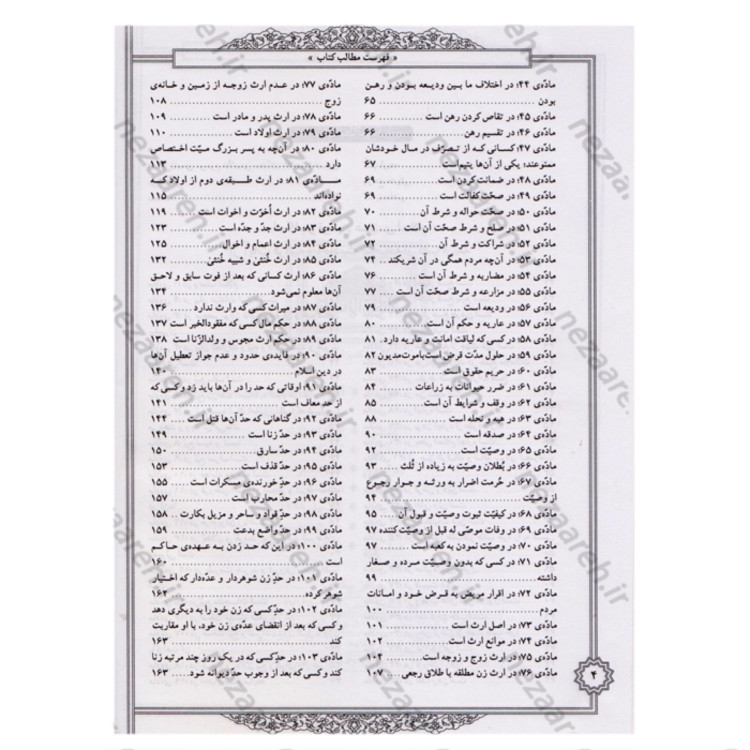 « فهرست مطالب کتاب »
ماده‌ی ۴۴؛ در اختلاف ما بین ودیعه بودن و رهن
بودن ................ ۶۵
ماده‌ی ۴۵؛ در تقاص کردن رهن است ........ ۶۶
ماده‌ی ۴۶؛ در تقسیم رهن ................ ۶۶
ماده‌ی ۴۷؛ کسانی که از تصرّف در مال خودشان
ممنوعند؛ یکی از آن‌ها یتیم است ........ ۶۷
ماده‌ی ۴۸؛ در ضمانت کردن است ............ ۶۹
ماده‌ی ۴۹؛ در صحّت کفالت است ............ ۶۹
ماده‌ی ۵۰؛ در صحّت حواله و شرط آن ........ ۷۰
ماده‌ی ۵۱؛ در صلح و شرط صحّت آن است ...... ۷۱
ماده‌ی ۵۲؛ در شراکت و شرط آن ............ ۷۲
ماده‌ی ۵۳؛ در آن‌چه مردم همگی در آن شریکند .... ۷۴
ماده‌ی ۵۴؛ در مضاربه و شرط آن است ........ ۷۶
ماده‌ی ۵۵؛ در مزارعه و شرط صحّت آن است ..... ۷۷
ماده‌ی ۵۶؛ در ودیعه است ................ ۷۹
ماده‌ی ۵۷؛ در عاریه و حکم آن است ........ ۸۰
ماده‌ی ۵۸؛ در کسی که لیاقت امانت و عاریه دارد. ۸۱
ماده‌ی ۵۹؛ در حلول مدّت قرض است با موت مدیون ۸۲
ماده‌ی ۶۰؛ در حریم حقوق است ............ ۸۳
ماده‌ی ۶۱؛ در ضرر حیوانات به زراعات ...... ۸۴
ماده‌ی ۶۲؛ در وقف و شرایط آن است ........ ۸۵
ماده‌ی ۶۳؛ در هبه و نحله است ............ ۸۸
ماده‌ی ۶۴؛ در صدقه است ................ ۹۰
ماده‌ی ۶۵؛ در وصیّت است ................ ۹۲
ماده‌ی ۶۶؛ در بُطلان وصیّت به زیاده از ثُلث .... ۹۳
ماده‌ی ۶۷؛ در حُرمت اضرار به ورثه و جواز رجوع
از وصیّت ................ ۹۴
ماده‌ی ۶۸؛ در کیفیّت ثبوت وصیّت و قبول آن .... ۹۵
ماده‌ی ۶۹؛ در وفات موصی له قبل از وصیّت کننده ۹۷
ماده‌ی ۷۰؛ در وصیّت نمودن به کعبه است ...... ۹۷
ماده‌ی ۷۱؛ در کسی که بدون وصیّت مرده و صغار
داشته ................ ۹۹
ماده‌ی ۷۲؛ در اقرار مریض به قرض خود و امانات
مردم ................ ۱۰۰
ماده‌ی ۷۳؛ در اصل ارث است ............ ۱۰۱
ماده‌ی ۷۴؛ در موانع ارث است ............ ۱۰۲
ماده‌ی ۷۵؛ در ارث زوج و زوجه است ........ ۱۰۴
ماده‌ی ۷۶؛ در ارث زن مطلقه با طلاق رجعی .... ۱۰۷
ماده‌ی ۷۷؛ در عدم ارث زوجه از زمین و خانه‌ی
زوج ................ ۱۰۸
ماده‌ی ۷۸؛ در ارث پدر و مادر است ........ ۱۰۹
ماده‌ی ۷۹؛ در ارث اولاد است ............ ۱۱۰
ماده‌ی ۸۰؛ در آن‌چه به پسر بزرگ میّت اختصاص
دارد ................ ۱۱۳
ماده‌ی ۸۱؛ در ارث طبقه‌ی دوم از اولاد که
نواده‌اند ................ ۱۱۵
ماده‌ی ۸۲؛ در ارث اُخوّت و اخوات است ...... ۱۱۹
ماده‌ی ۸۳؛ در ارث جدّ و جدّه است ........ ۱۲۳
ماده‌ی ۸۴؛ در ارث اعمام و اخوال ........ ۱۲۵
ماده‌ی ۸۵؛ در ارث خُنثیٰ و شبیه خُنثیٰ ...... ۱۳۲
ماده‌ی ۸۶؛ ارث کسانی که بعد از فوت سابق و لاحق
آن‌ها معلوم نمی‌شود ................ ۱۳۴
ماده‌ی ۸۷؛ در میراث کسی که وارث ندارد .... ۱۳۶
ماده‌ی ۸۸؛ در حکم مال کسی که مفقودالخبر است ۱۳۷
ماده‌ی ۸۹؛ در حکم ارث مجوس و ولدالزّنا است ۱۳۸
ماده‌ی ۹۰؛ در فایده‌ی حدود و عدم جواز تعطیل آن‌ها
در دین اسلام ................ ۱۴۰
ماده‌ی ۹۱؛ اوقاتی که حد را در آن‌ها باید زد و کسی که
از حد معاف است ................ ۱۴۱
ماده‌ی ۹۲؛ در گناهانی که حدّ آن‌ها قتل است .... ۱۴۴
ماده‌ی ۹۳؛ در حدّ زنا است ............ ۱۴۹
ماده‌ی ۹۴؛ در حدّ سارق ................ ۱۵۰
ماده‌ی ۹۵؛ در حدّ قذف است ............ ۱۵۳
ماده‌ی ۹۶؛ در حدّ خورنده‌ی مسکرات است .... ۱۵۵
ماده‌ی ۹۷؛ در حدّ محارب است ............ ۱۵۷
ماده‌ی ۹۸؛ در حدّ قواد و ساحر و مزیل بکارت .. ۱۵۸
ماده‌ی ۹۹؛ در حدّ واضع بدعت ............ ۱۵۹
ماده‌ی ۱۰۰؛ در این که حد زدن به عهده‌ی حاکم
است ................ ۱۶۰
ماده‌ی ۱۰۱؛ در حدّ زن شوهردار و عدّه‌دار که اختیار
شوهر کرده ................ ۱۶۲
ماده‌ی ۱۰۲؛ در حدّ کسی که زن خود را به دیگری دهد
و کسی که بعد از انقضای عدّه‌ی زن خود، با او مقاربت
کند ................ ۱۶۳
ماده‌ی ۱۰۳؛ در حدّ کسی که در یک روز چند مرتبه زنا
کند و کسی که بعد از وجوب حدّ دیوانه شود .... ۱۶۳
۴
nezaareh.ir